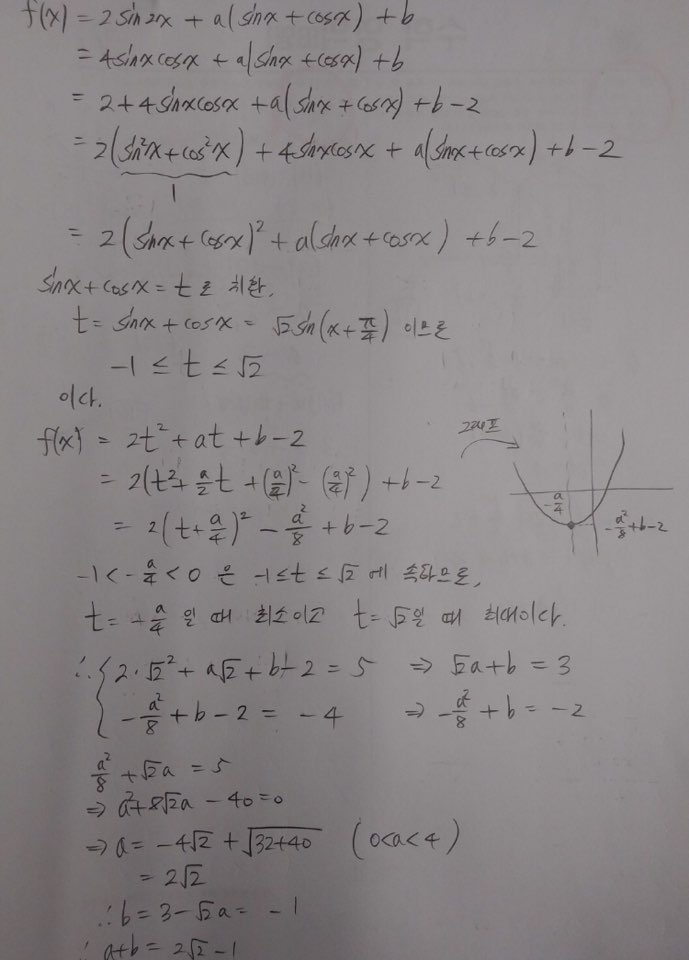 f(x) = 2sin2x + a(sinx + cosx) + b
= 4sinxcosx + a(sinx + cosx) + b
= 2 + 4sinxcosx + a(sinx + cosx) + b - 2
= 2(sin²x + cos²x) + 4sinxcosx + a(sinx + cosx) + b - 2
1
= 2(sinx + cosx)² + a(sinx + cosx) + b - 2
sinx + cosx = t 로 치환,
t = sinx + cosx = √2sin(x + π/4) 이므로
-1 ≤ t ≤ √2
이다.
f(x) = 2t² + at + b - 2
= 2(t² + a/2 t + (a/4)² - (a/4)²) + b - 2
= 2(t + a/4)² - a²/8 + b - 2
-a/4
-a²/8 + b - 2
-1 < -a/4 < 0 은 -1 ≤ t ≤ √2 에 속하므로,
t = -a/4 일 때 최소이고 t = √2일 때 최대이다.
∴ { 2·√2² + a√2 + b - 2 = 5 ⇒ √2a + b = 3
-a²/8 + b - 2 = -4 ⇒ -a²/8 + b = -2
a²/8 + √2a = 5
⇒ a² + 8√2a - 40 = 0
⇒ a = -4√2 + √32+40 (0<a<4)
= 2√2
∴ b = 3 - √2a = -1
∴ a+b = 2√2 - 1